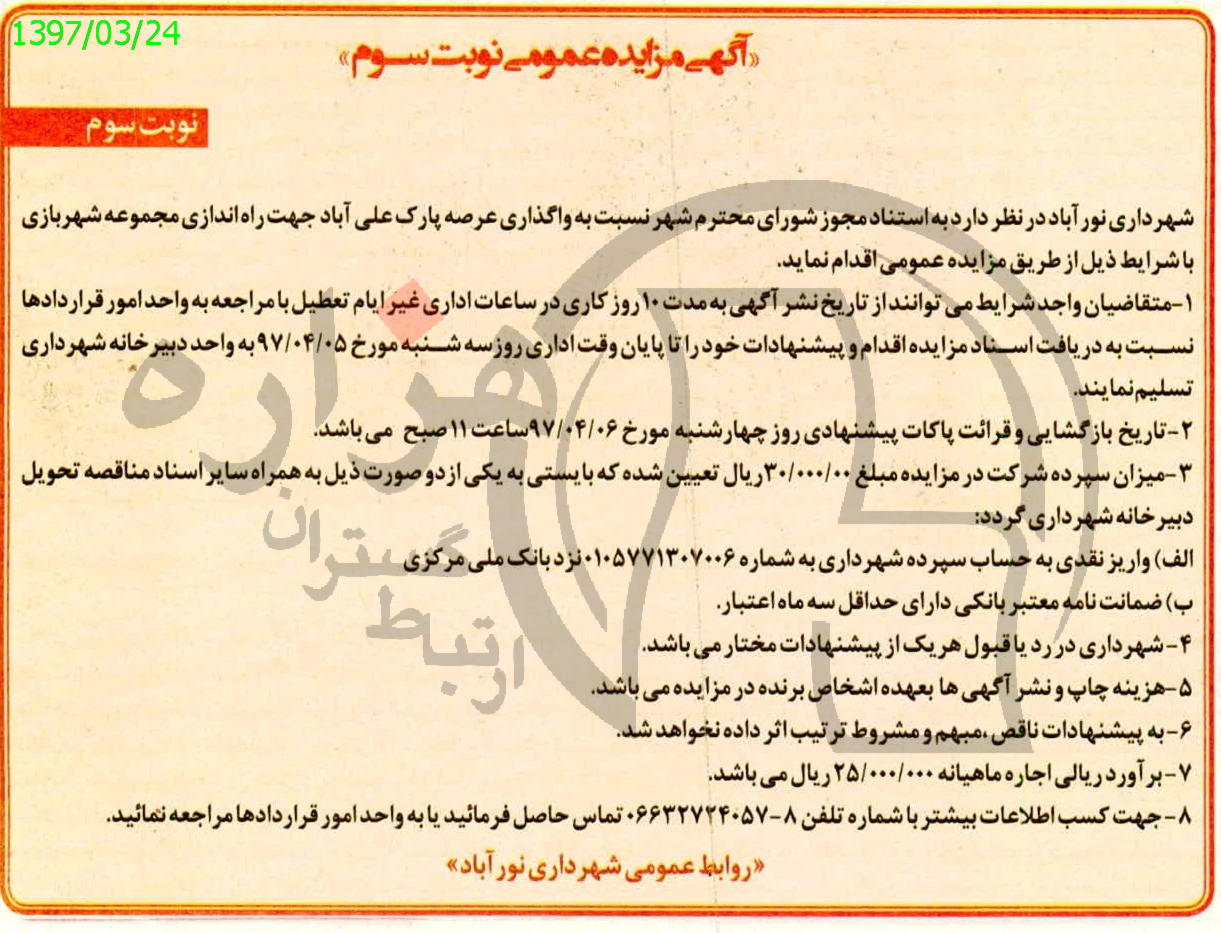 1397/03/24
«آگهی مزایده عمومی نوبت سوم»
نوبت سوم
شهرداری نورآباد در نظر دارد به استناد مجوز شورای محترم شهر نسبت به واگذاری عرصه پارک علی آباد جهت راه اندازی مجموعه شهربازی
با شرایط ذیل از طریق مزایده عمومی اقدام نماید.
۱-متقاضیان واجد شرایط می توانند از تاریخ نشر آگهی به مدت ۱۰ روز کاری در ساعات اداری غیر ایام تعطیل با مراجعه به واحد امور قراردادها
نسبت به دریافت اسناد مزایده اقدام و پیشنهادات خود را تا پایان وقت اداری روز سه شنبه مورخ ۹۷/۰۴/۰۵ به واحد دبیرخانه شهرداری
تسلیم نمایند.
۲-تاریخ بازگشایی و قرائت پاکات پیشنهادی روز چهارشنبه مورخ ۹۷/۰۴/۰۶ساعت ۱۱ صبح می باشد.
۳-میزان سپرده شرکت در مزایده مبلغ ۳۰/۰۰۰/۰۰ریال تعیین شده که بایستی به یکی از دو صورت ذیل به همراه سایر اسناد مناقصه تحویل
دبیرخانه شهرداری گردد:
الف) واریز نقدی به حساب سپرده شهرداری به شماره ۰۱۰۵۷۷۱۳۰۷۰۰۶نزد بانک ملی مرکزی
ب) ضمانت نامه معتبر بانکی دارای حداقل سه ماه اعتبار.
۴-شهرداری در رد یا قبول هریک از پیشنهادات مختار می باشد.
۵-هزینه چاپ و نشر آگهی ها بعهده اشخاص برنده در مزایده می باشد.
۶-به پیشنهادات ناقص ،مبهم و مشروط ترتیب اثر داده نخواهد شد.
۷-برآورد ریالی اجاره ماهیانه ۲۵/۰۰۰/۰۰۰ ریال می باشد.
۸-جهت کسب اطلاعات بیشتر با شماره تلفن ۸-۰۶۶۳۲۷۲۴۰۵۷ تماس حاصل فرمائید یا به واحد امور قراردادها مراجعه نمائید.
«روابط عمومی شهرداری نورآباد»
هزاره
گستران
ارتباط